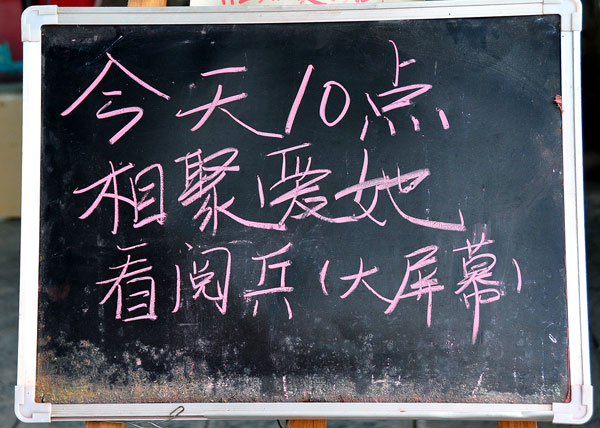 今天10点
相聚爱她
看阅兵(大屏幕)